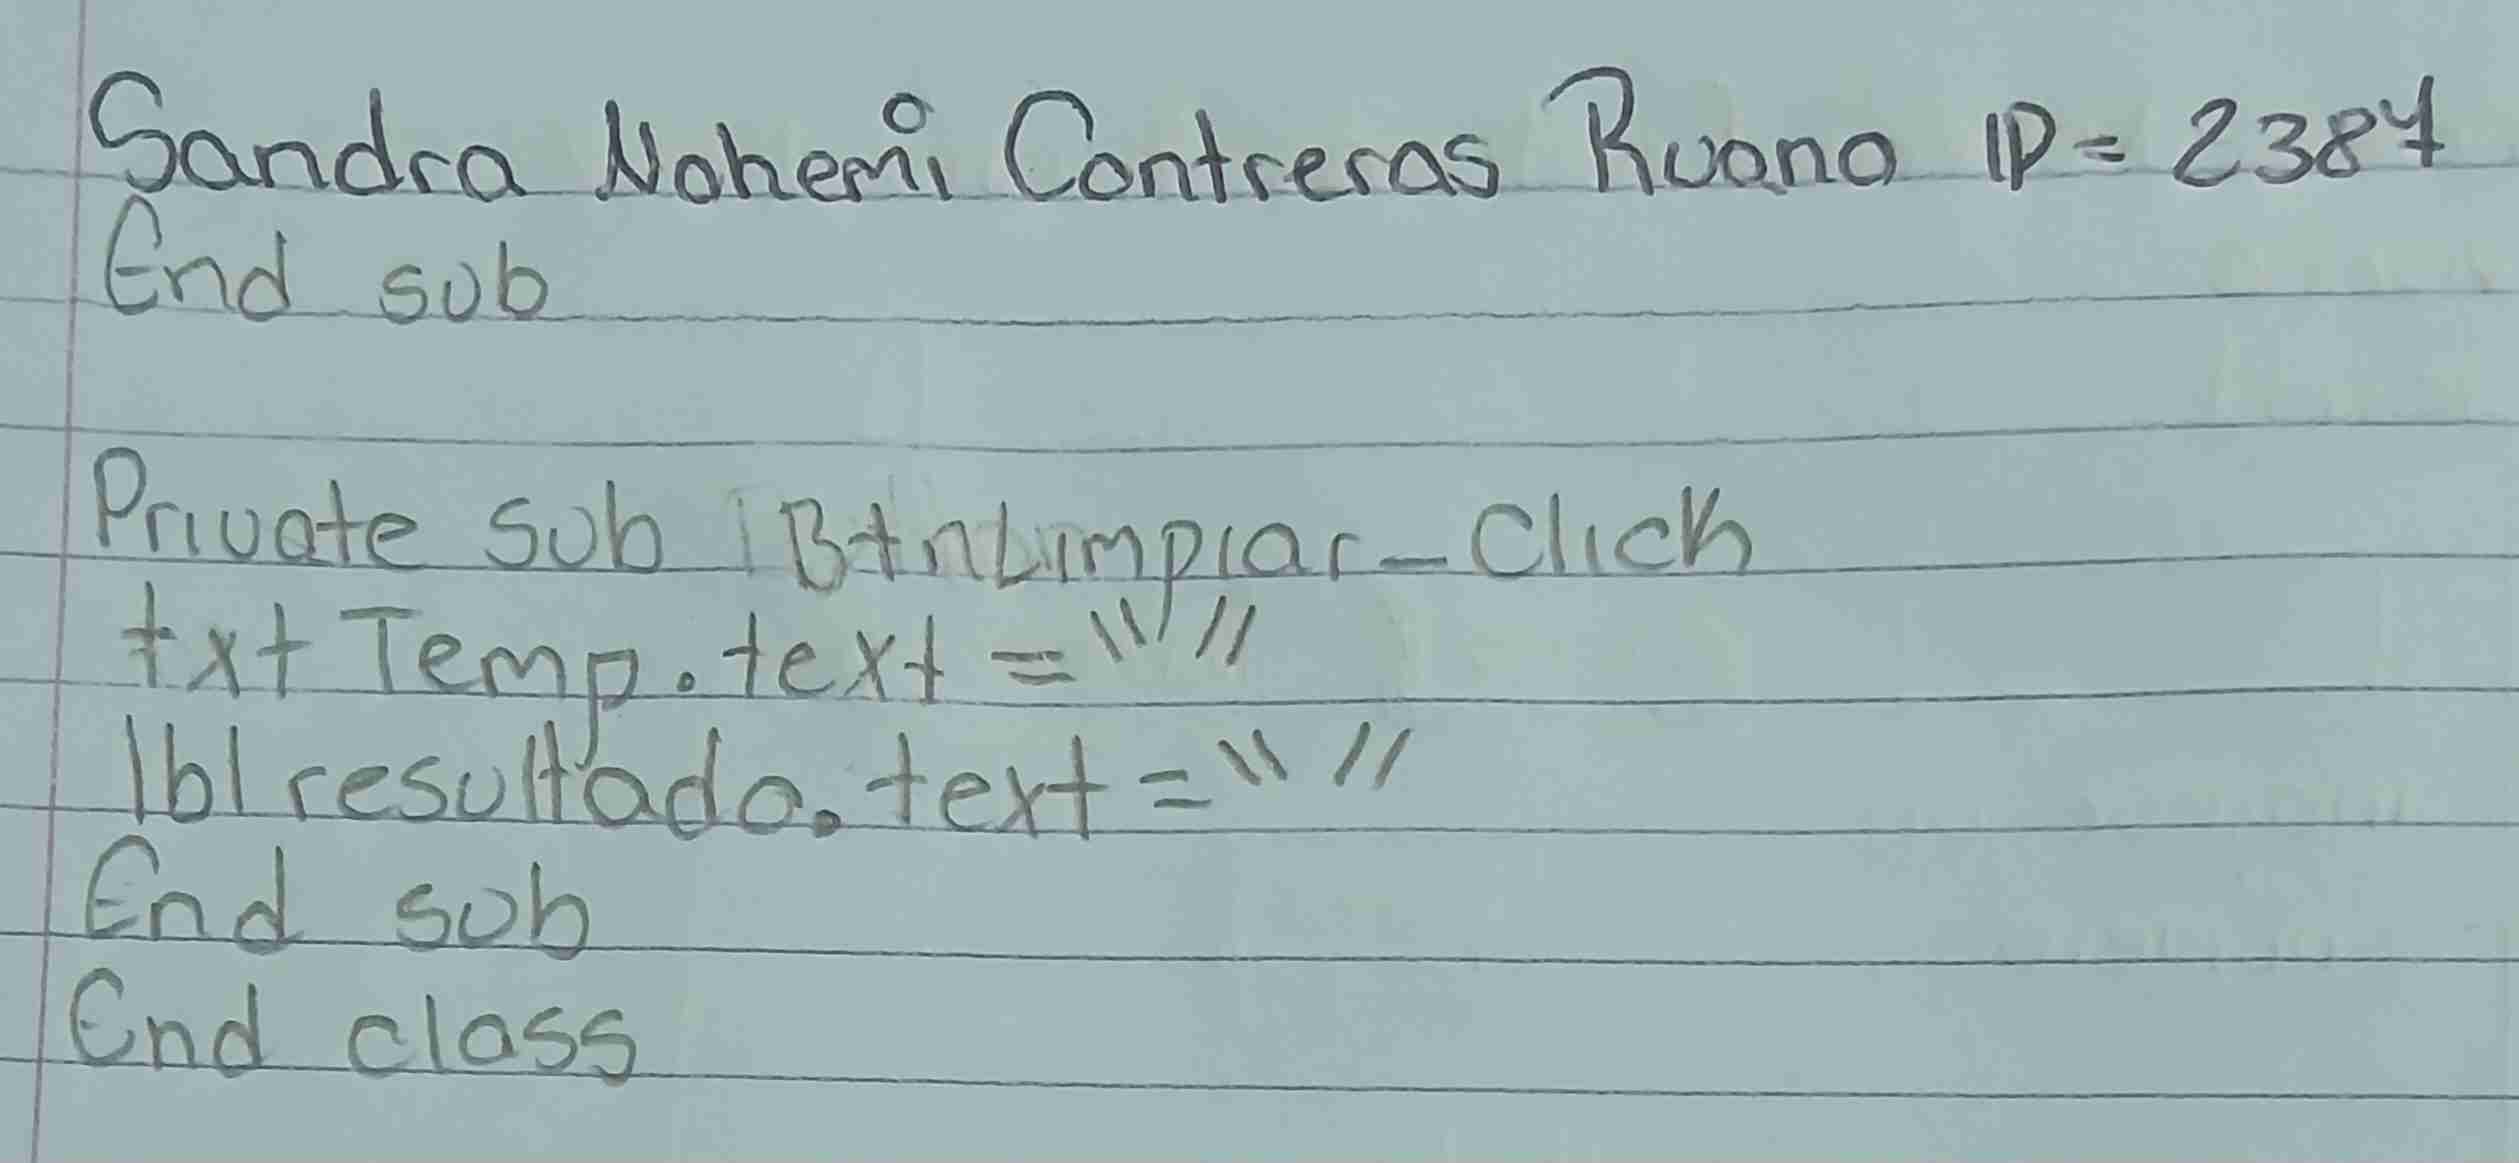 Sandra Nohemi Contreras Ruano ID = 2387
End sub
Private sub BtnLimpiar_Click
txt Temp.text = ""
lbl resultado.text = " "
End sub
End class